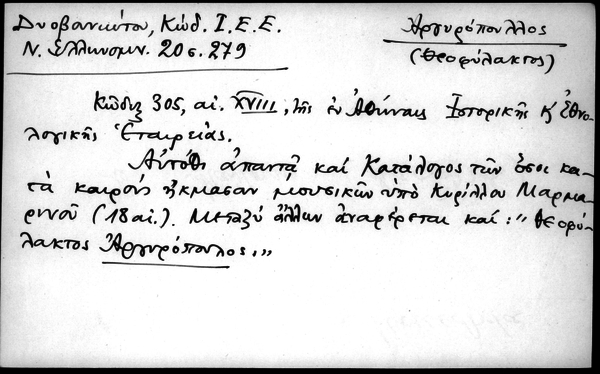 Δυοβουνιώτου, Κώδ. Ι.Ε.Ε.
Ν. Ἑλληνομν. 20 σ. 279
Ἀργυρόπουλλος
(Θεοφύλακτος)
Κῶδιξ 305, αἰ. XVIII, τῆς ἐν Ἀθήναις Ἱστορικῆς κ' Ἐθνο-
λογικῆς Ἑταιρείας.
Αὐτόθι ἀπαντᾷ καὶ Κατάλογος τῶν ὅσοι κα-
τὰ καιροὺς ἤκμασαν μουσικῶν ὑπὸ Κυρίλλου Μαρμα-
ρινοῦ (18 αἰ.). Μεταξὺ ἄλλων ἀναφέρεται καί: "Θεοφύ-
λακτος Ἀργυρόπουλος."